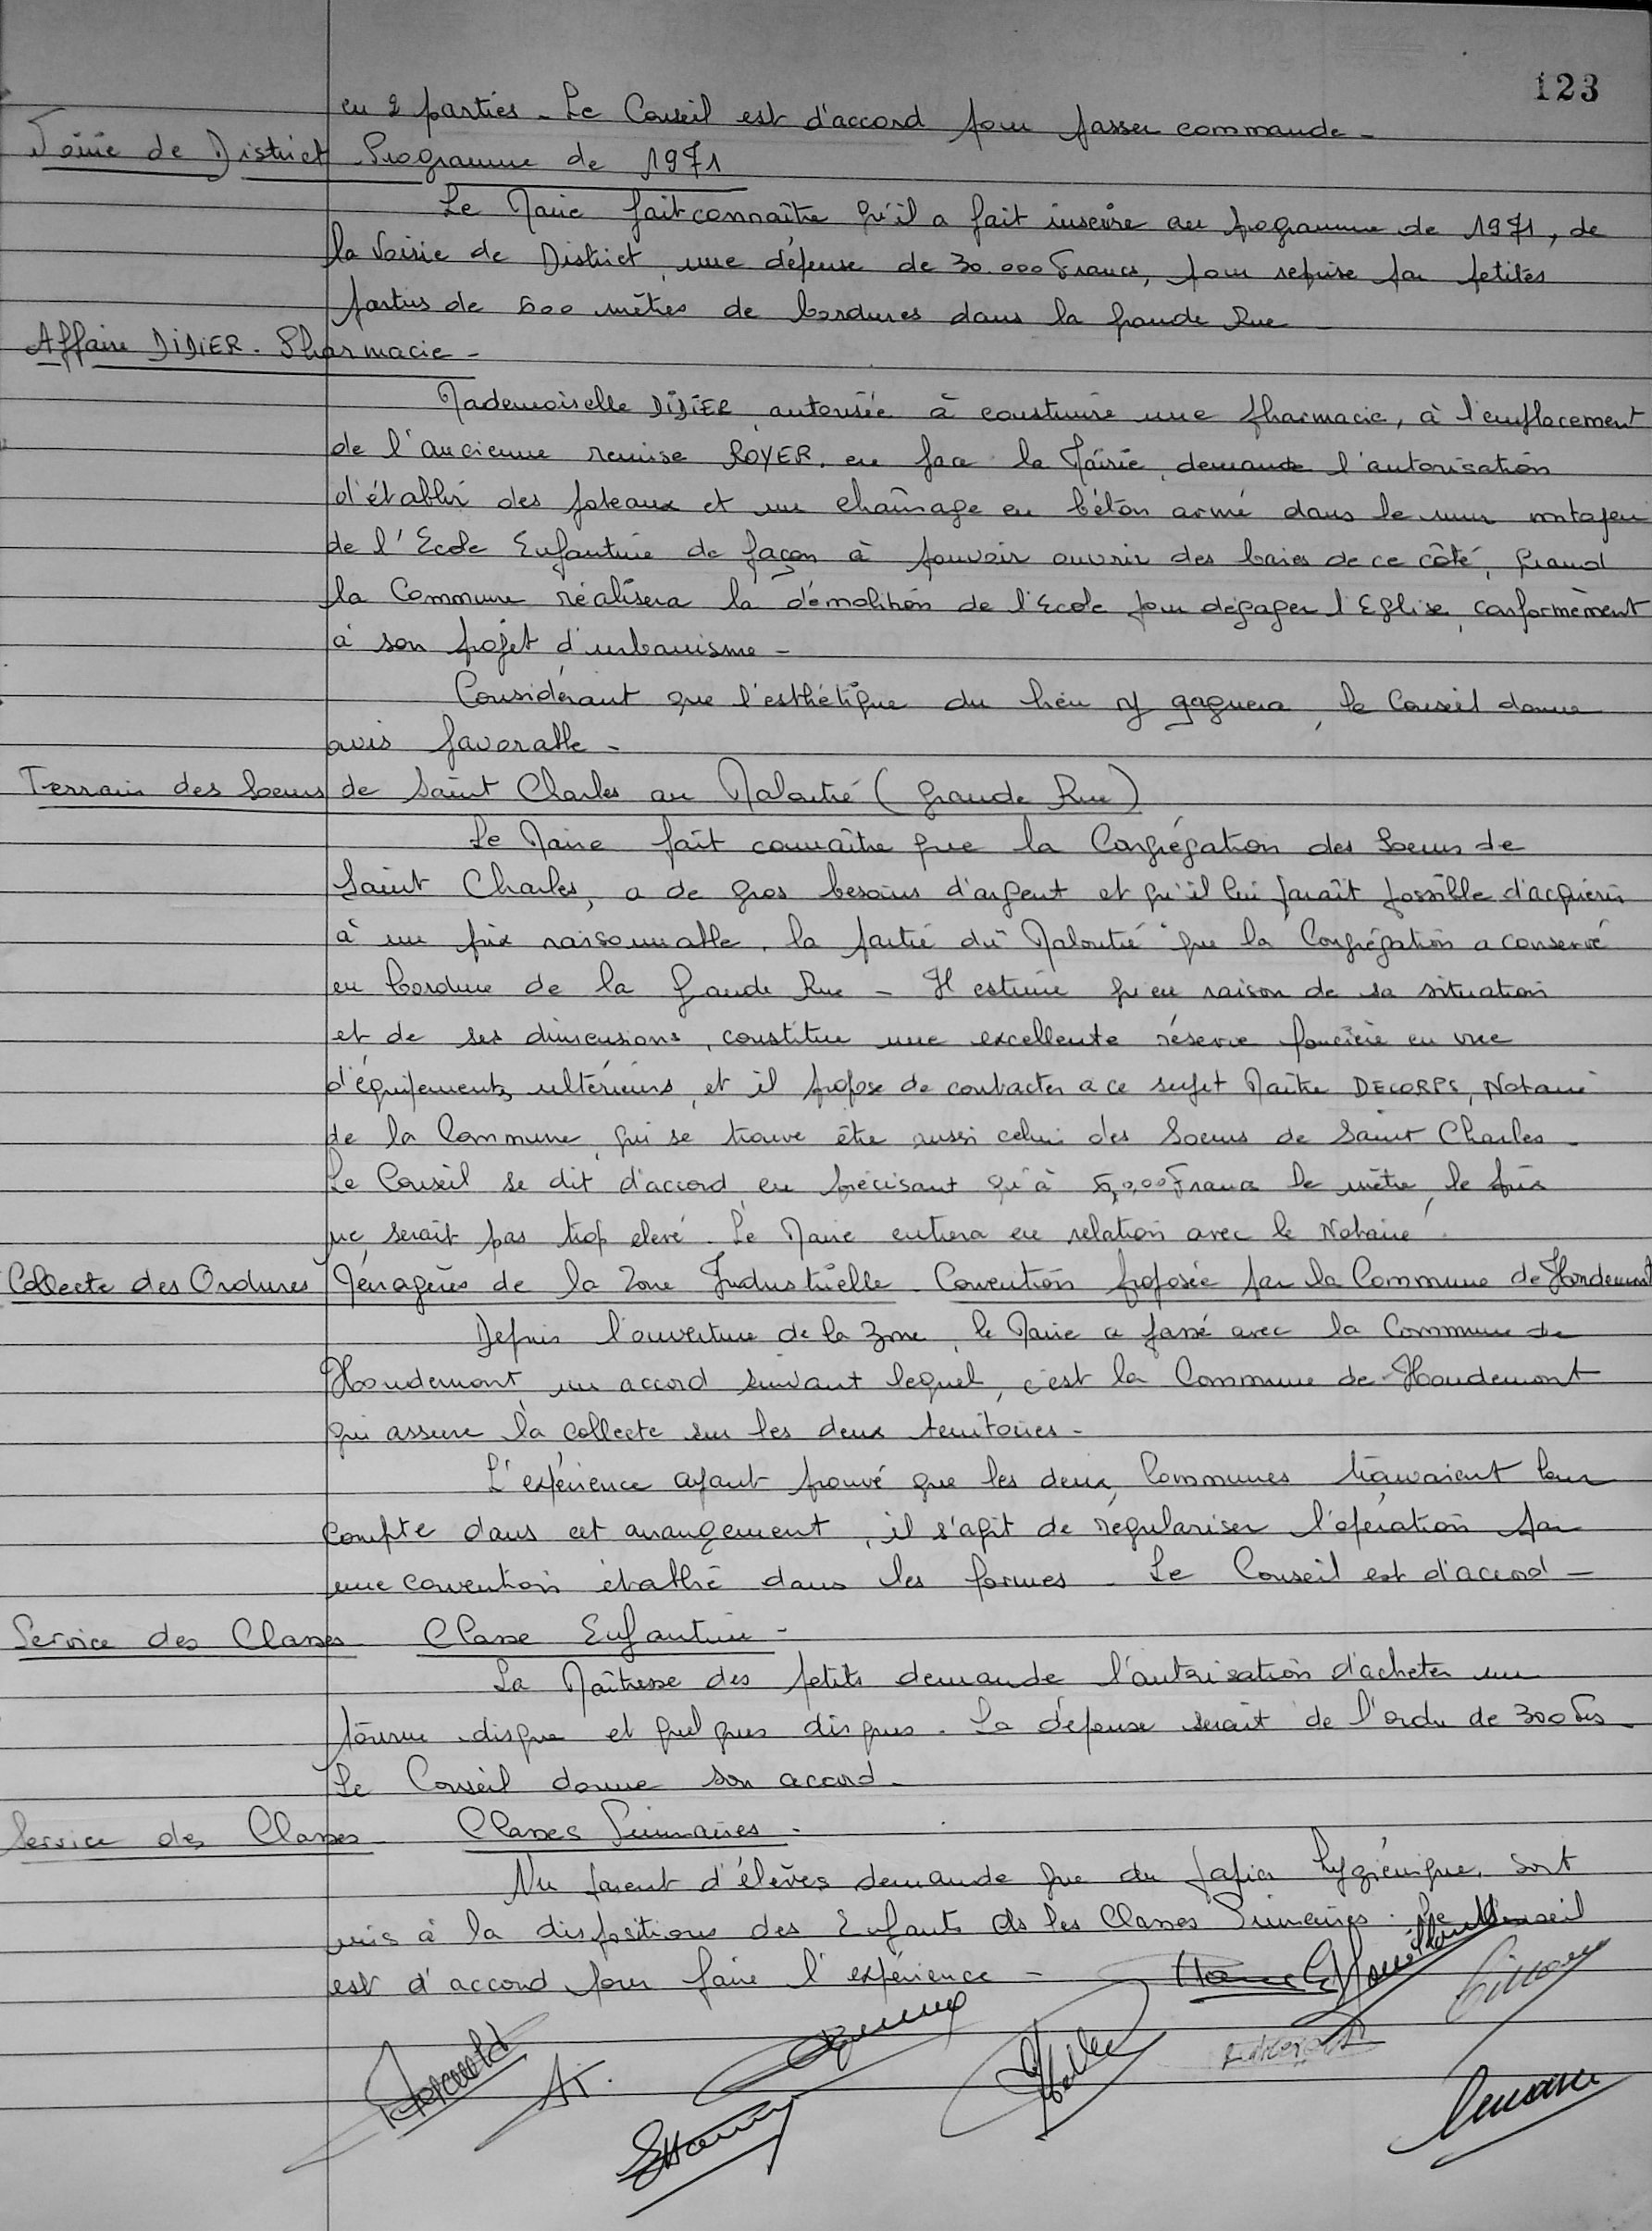 123
en 2 parties - Le Conseil est d'accord pour passer commande -
Voirie de District Programme de 1971
Le Maire fait connaître qu'il a fait inscrire au programme de 1971, de
la Voirie de District, une dépense de 30.000 Francs, pour reprise par petites
parties de 600 mètres de bordures dans la grande Rue -
Affaire DIDIER - Pharmacie -
Mademoiselle DIDIER, autorisée à construire une pharmacie, à l'emplacement
de l'ancienne remise ROYER, en face la Mairie, demande l'autorisation
d'établir des poteaux et un chaînage en béton armé dans le mur mitoyen
de l'Ecole Enfantine de façon à pouvoir ouvrir des baies de ce côté, quand
la Commune réalisera la démolition de l'Ecole pour dégager l'Eglise, conformément
à son projet d'urbanisme -
Considérant que l'esthétique du lieu y gagnera, le Conseil donne
avis favorable -
Terrain des Soeurs de Saint Charles au Maloutié (grande Rue)
Le Maire fait connaître que la Congrégation des Soeurs de
Saint Charles, a de gros besoins d'argent et qu'il lui paraît possible d'acquérir
à un prix raisonnable, la partie du "Maloutié" que la Congrégation a conservé
en bordure de la Grande Rue - Il estime qu'en raison de sa situation
et de ses dimensions, constitue une excellente réserve foncière en vue
d'équipements ultérieurs, et il propose de contacter à ce sujet Maître DECORPS, Notaire
de la Commune, qui se trouve être aussi celui des Soeurs de Saint Charles -
Le Conseil se dit d'accord en précisant qu'à Francs le mètre, le prix
ne serait pas trop élevé. Le Maire entrera en relation avec le Notaire.
Collecte des Ordures Ménagères de la Zone Industrielle - Convention proposée par la Commune de Houdemont
Depuis l'ouverture de la Zone, le Maire a passé avec la Commune de
Houdemont, un accord suivant lequel, c'est la Commune de Houdemont
qui assure la collecte sur les deux territoires -
L'expérience ayant prouvé que les deux Communes trouvaient leur
compte dans cet arrangement, il s'agit de régulariser l'opération par
une convention établie dans les formes - Le Conseil est d'accord -
Service des Classes - Classe Enfantine -
La Maîtresse des petits demande l'autorisation d'acheter un
tourne-disque et quelques disques. La dépense serait de l'ordre de 300 Frs -
Le Conseil donne son accord -
Service des Classes - Classes Primaires -
Un parent d'élèves demande que du papier hygiénique, soit
mis à la disposition des Enfants ds les Classes Primaires. Le Conseil
est d'accord pour faire l'expérience -